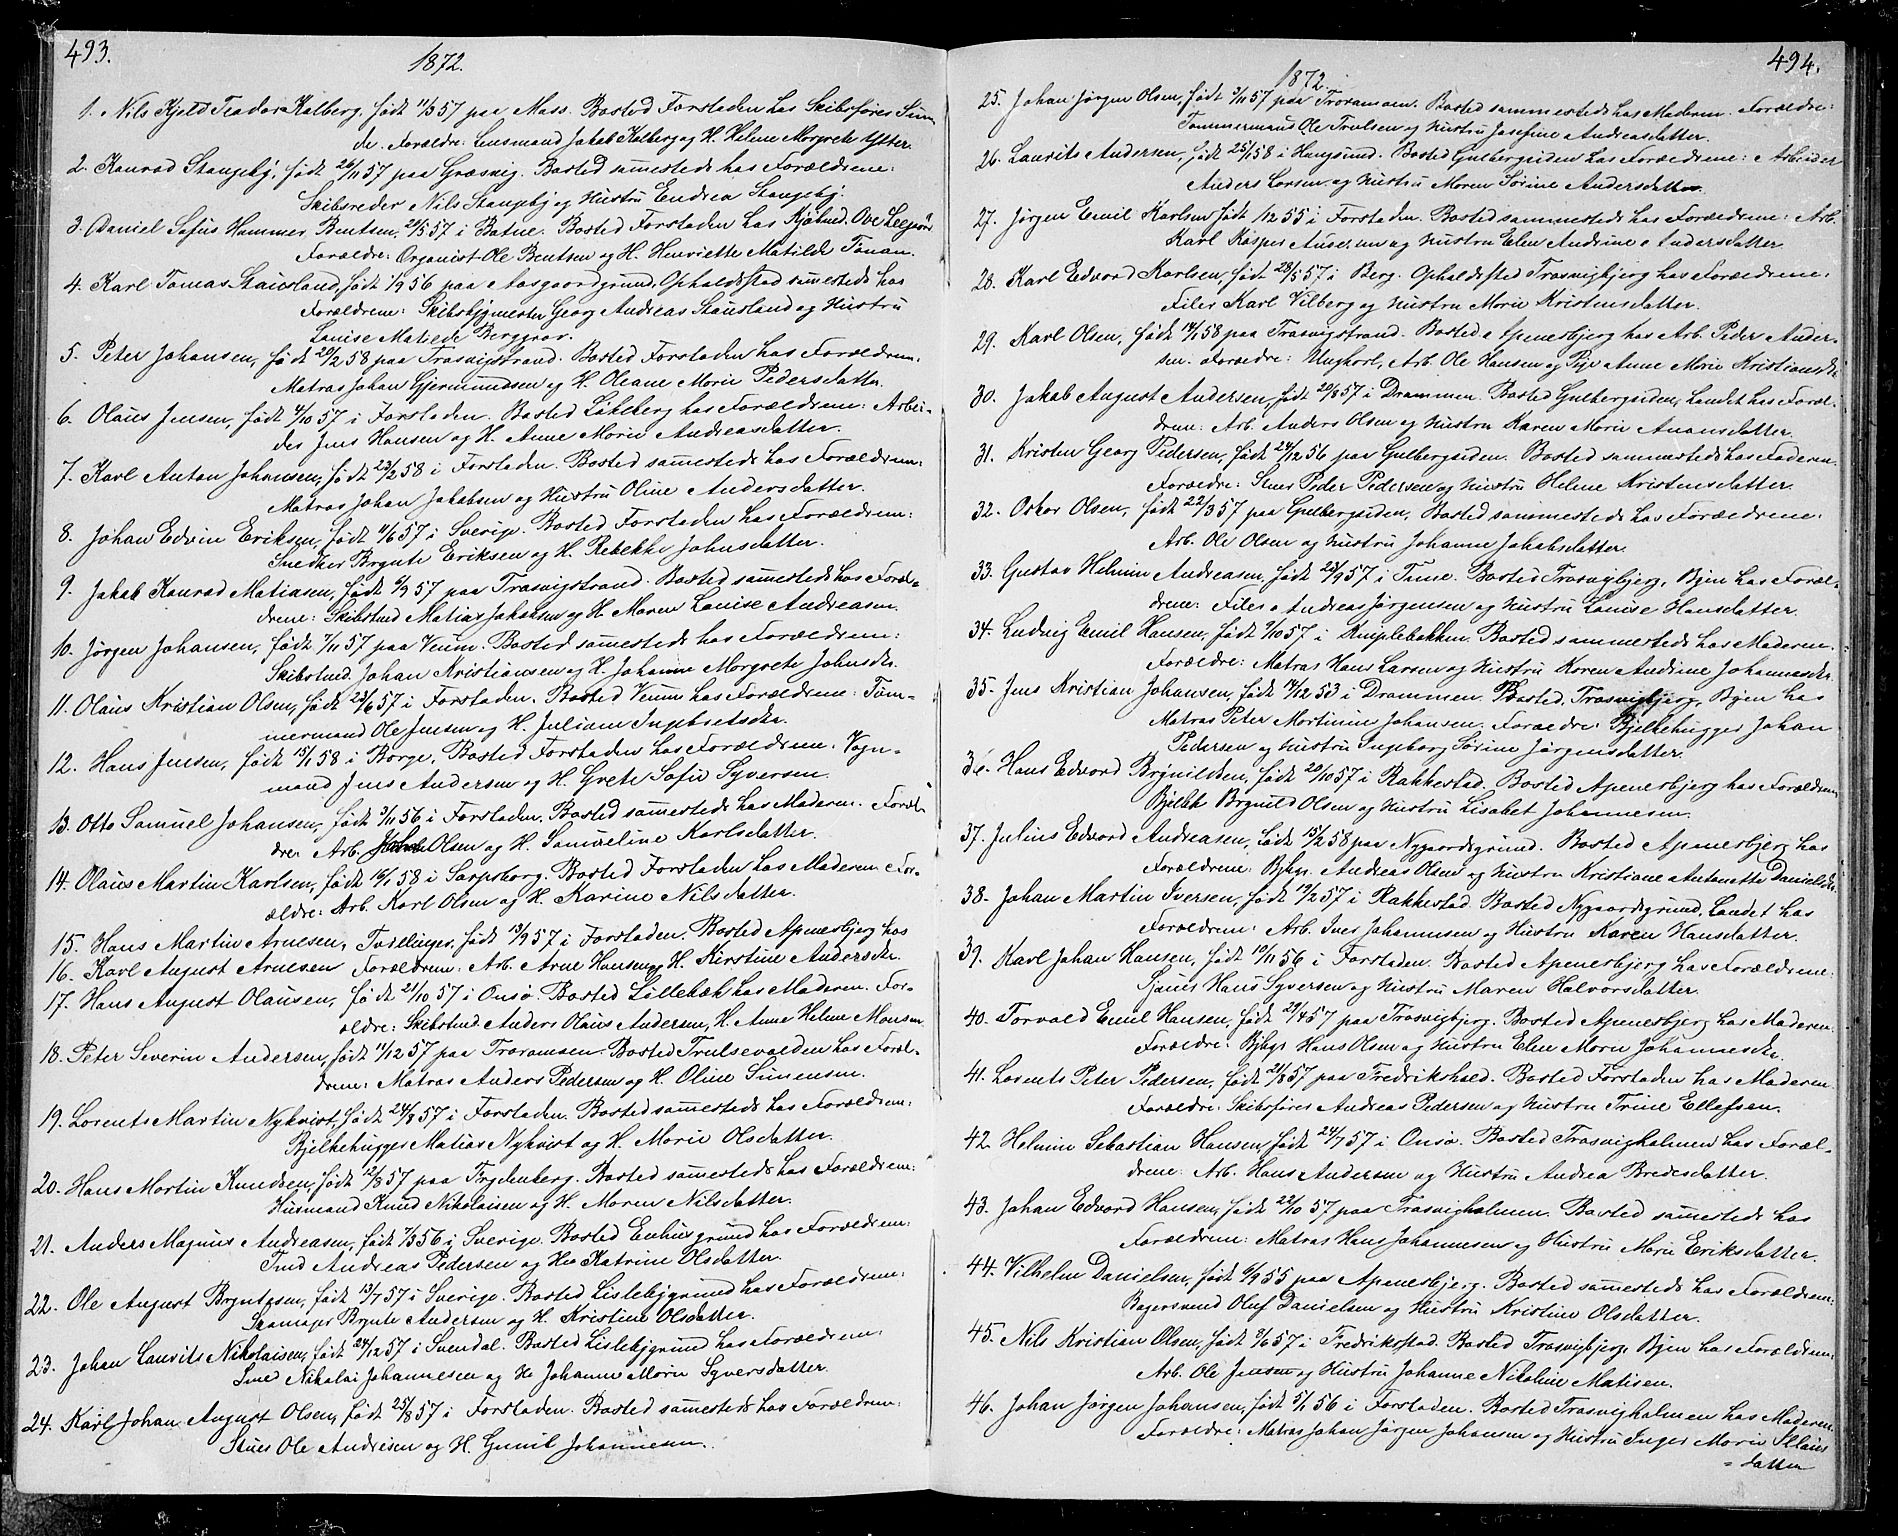 493.
1872.
1. Nils Kjeld Teodor Kalberg, født 11/3 57 paa Moss. Bosted Forstaden hos Skibsfører Sun
de. Forældre: Lensmand Jakob Kalberg og H. Helene Margrete Ytter.
2. Konrad Stangeby, født 26/11 57 paa Græsvig. Bosted sammesteds hos Forældrene:
Skibsreder Nils Stangeby og Hustru Endrea Stangeby.
3. Daniel Sofus Hammer Bentsen, 21/5 57 i Batne. Bosted Forstaden hos Kjøbmd. Ove
Forældre: Organist Ole Bentsen og H. Henriette Matilde Tønan.
4. Karl Tomas Stausland, født 1/9 56 paa Aasgaardgrund, Opholdsstad samesteds hos
Forældrene: Skibsbygmester Georg Andreas Stausland og Hustru
Louise Matilde Berggrav.
5. Peter Johansen, født 20/2 58 paa Trosvigstrand. Bosted Forstaden hos Forældrene:
Matros Johan Gjermundsen og H. Oleane Marie Pedersdatter.
6. Olaus Jensen, født 4/10 57 i Forstaden. Bosted Likeberg hos Forældrene: Arbei-
der Jens Hansen og H. Anne Marie Andreasdatter.
7. Karl Anton Johansen, født 23/2 58 i Forstaden. Bosted samesteds hos Forældrene:
Matros Johan Jakobsen og Hustru Oline Andersdatter.
8. Johan Edvin Eriksen, født 11/6 57 i Sverige. Bosted Forstaden hos Forældrene:
Snedker Brynte Eriksen og H. Rebekke Johnsdatter.
9. Jakob Konrad Matiasen, født 6/9 57 paa Trosvigstrand. Bosted samesteds hos Foræl-
drene: Skibstmd Matias Jakobsen og H. Maren Louise Andreasen.
10. Jørgen Johansen, født 7/11 57 paa Veum. Bosted samesteds hos Forældrene:
Skibstmd. Johan Kristiansen og H. Johanne Margrete Johnsdtr.
11. Olaus Kristian Olsen, født 23/6 57 i Forstaden. Bosted Veum hos Forældrene: Tøm-
mermand Ole Jensen og H. Juliane Ingebretsdtr.
12. Hans Jensen, født 15/1 58 i Borge. Bosted Forstaden hos Forældrene. Vogn-
mand Jens Andersen og H. Grete Sofie Syversen.
13. Otto Samuel Johansen, født 3/11 56 i Forstaden. Bosted samesteds hos Moderen. Foræl
dre: Arb. Johan Olsen og H. Samueline Karlsdatter.
14. Olaus Martin Karlsen, født 16/1 58 i Sarpsborg. Bosted Forstaden hos Moderen. For-
ældre: Arb. Karl Olsen og H. Karine Nilsdatter.
15. Hans Martin Arnesen, Tvillinger, født 13/9 57 i Forstaden. Bosted Apenesbjerg hos
16. Karl August Arnesen Forældrene: Arb. Arne Hansen og H. Kirstine Andersdtr.
17. Hans August Olausen, født 21/10 57 i Onsø. Bosted Lillebæk hos Moderen. For-
ældre: Skibstmd Anders Olaus Andersen, H. Anne Helene Monsen
18. Peter Severin Andersen, født 11/12 57 paa Traraasen. Bosted Trulsevolden hos Foræl-
drene: Matros Anders Pedersen og H. Oline Simensen.
19. Lorents Martin Nykvist, født 24/8 57 i Forstaden. Bosted samesteds hos Forældrene:
Bjelkehugger Matias Nykvist og H. Marie Olsdatter.
20. Hans Martin Knudsen, født 12/8 57 paa Frydenberg. Bosted samesteds hos Forældrene:
Husmand Knud Nikolaisen og H. Maren Nilsdatter.
21. Anders Magnus Andreasen, født 7/3 56 i Sverige. Bosted Enhusgrund hos Forældrene:
Tmd Andreas Pedersen og Hu Katrine Olsdatter.
22. Ole August Bryntesen, født 13/7 57 i Sverige. Bosted Lislebygrund hos Forældrene:
Skomager Brynte Andersen og H. Kristine Olsdatter.
23. Johan Laurits Nikolaisen, født 24/12 57 i Svendal. Bosted Lislebygrund hos Forældrene:
Smed Nikolai Johannesen og H. Johanne Marie Syversdatter.
24. Karl Johan August Olsen, født 25/8 57 i Forstaden. Bosted samesteds hos Forældrene:
Stuer Ole Andresen og H. Gunil Johannesen.
494.
1872.
25. Johan Jørgen Olsen, født 9/11 57 paa Traraasen. Bosted sammesteds hos Moderen. Forældre:
Tømmermand Ole Trulsen og Hustru Josefine Andreasdatter.
26. Laurits Andersen, født 25/1 58 i Haugsund. Bosted Gulbergsiden hos Forældrene: Arbeider
Anders Larsen og Hustru Maren Sørine Andersdatter.
27. Jørgen Emil Karlsen, født 1/12 55 i Forstaden. Bosted sammesteds hos Forældrene: Arb.
Karl Kasper Ausen og Hustru Elen Andrine Andersdatter.
28. Karl Edvard Karlsen, født 28/5 57 i Berg. Opholdssted Trosvigbjerg hos Forældrene.
Filer Karl Vilberg og Hustru Marie Kristensdatter.
29. Karl Olsen, født 14/1 58 paa Trosvigstrand. Bosted Apenesbjerg hos Arb. Peder Ander-
sen. Forældre: Ungkarl, Arb. Ole Hansen og Pige Anne Marie Kristiansdtr
30. Jakob August Andersen, født 20/8 57 i Drammen. Bosted Gulbergsiden, Landet hos Foræl-
drene: Arb. Anders Olsen og Hustru Karen Marie Amonsdatter.
31. Kristen Georg Pedersen, født 24/12 56 paa Gulbergsiden. Bosted sammesteds hos Faderen.
Forældre: Stuer Peder Pedersen og Hustru Helene Kristensdatter.
32. Oskar Olsen, født 22/3 57 paa Gulbergsiden. Bosted sammesteds hos Forældrene:
Arb. Ole Olsen og Hustru Johanne Jakobsdatter.
33. Gustav Helmin Andreasen, født 28/9 57 i Tune. Bosted Trosvigbjerg, Byen hos Foræl-
drene: Filer Andreas Jørgensen og Hustru Louise Hansdatter.
34. Ludvig Emil Hansen, født 9/10 57 i Kniplebakken. Bosted sammesteds hos Moderen.
Forældre: Matros Hans Larsen og Hustru Karen Andrine Johannesdtr.
35. Jens Kristian Johansen, født 14/12 53 i Drammen. Bosted, Trosvigbjerg, Byen hos
Matros Peter Martinius Johansen. Forældre: Bjelkehugger Johan
Pedersen og Hustru Ingeborg Sørine Jørgensdatter.
36. Hans Edvard Brynildsen, født 20/10 57 i Rakkestad. Bosted Apenesbjerg hos Forældrene
Bjelkh Brynild Olsen og Hustru Lisabet Johannesen.
37. Julius Edvard Andreasen, født 15/2 58 paa Nygaardsgrund. Bosted Apenesbjerg hos
Forældrene: Bjhgr. Andreas Olsen og Hustru Kristiane Antonette Danielsdtr.
38. Johan Martin Iversen, født 19/2 57 i Rakkestad. Bosted Nygaardsgrund, Landet hos
Forældrene: Arb. Iver Johannesen og Hustru Karen Hansdatter.
39. Karl Johan Hansen, født 10/11 56 i Forstaden. Bosted Apenesbjerg hos Forældrene:
Sjauer Hans Syversen og Hustru Maren Halvorsdatter.
40. Torvald Emil Hansen, født 29/4 57 paa Trosvigbjerg. Bosted Apenesbjerg hos Moderen.
Forældre: Bjhgr Hans Olsen og Hustru Elen Marie Johannesdtr.
41. Lorents Peter Pedersen, født 21/8 57 paa Fredrikshald. Bosted Forstaden hos Moderen
Forældre: Skibsfører Andreas Pedersen og Hustru Trine Ellefsen.
42. Helmin Sebastian Hansen, født 24/7 57 i Onsø. Bosted Trosvigholmen hos Foræl-
drene: Arb. Hans Andersen og Hustru Andrea Bredesdatter.
43. Johan Edvard Hansen, født 22/10 57 paa Trosvigholmen. Bosted samesteds hos
Forældrene: Matros Hans Johannesen og Hustru Marie Eriksdatter.
44. Vilhelm Danielsen, født 6/9 55 paa Apenesbjerg. Bosted samesteds hos Forældrene:
Bagersvend Oluf Danielsen og Hustru Kristine Olsdatter.
45. Nils Kristian Olsen, født 9/6 57 i Fredrikstad. Bosted Trosvigbjerg, Byen hos Forældrene:
Arb. Ole Jensen og Hustru Johanne Nikoline Matisen.
46. Johan Jørgen Johansen, født 5/1 56 i Forstaden. Bosted Trosvigholmen hos Moderen.
Forældre: Matros Johan Jørgen Johansen og Hustru Inger Marie
= datter